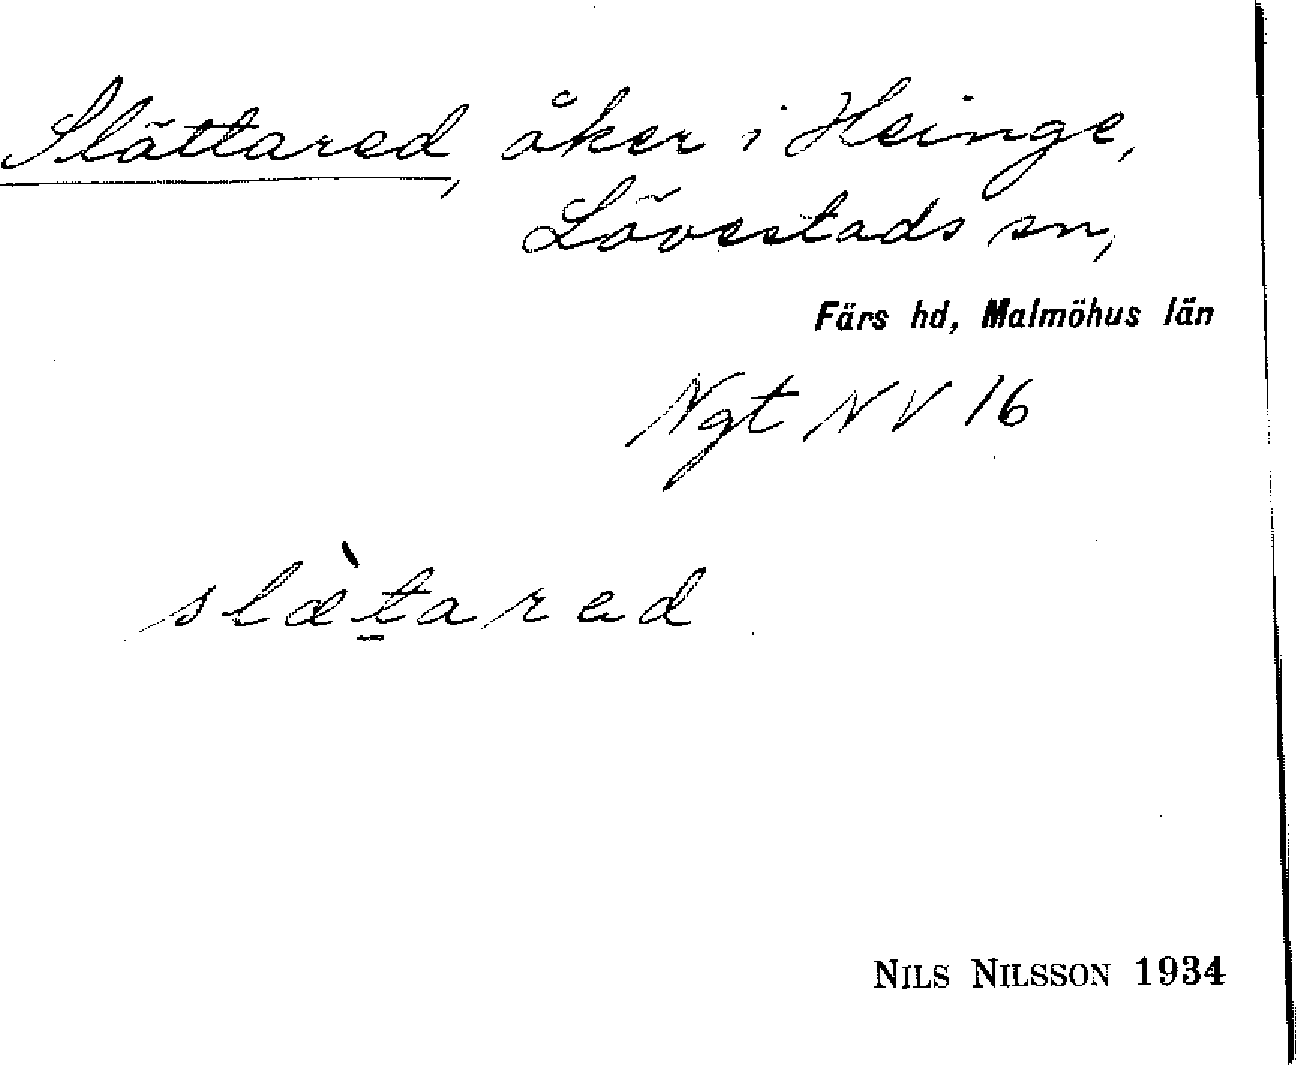 Slättared, åker i Heinge,
Lövestads sn,
Färs hd, Malmöhus län
Ngt NV 16
slæ̀t̠ared
NILS NILSSON 1934